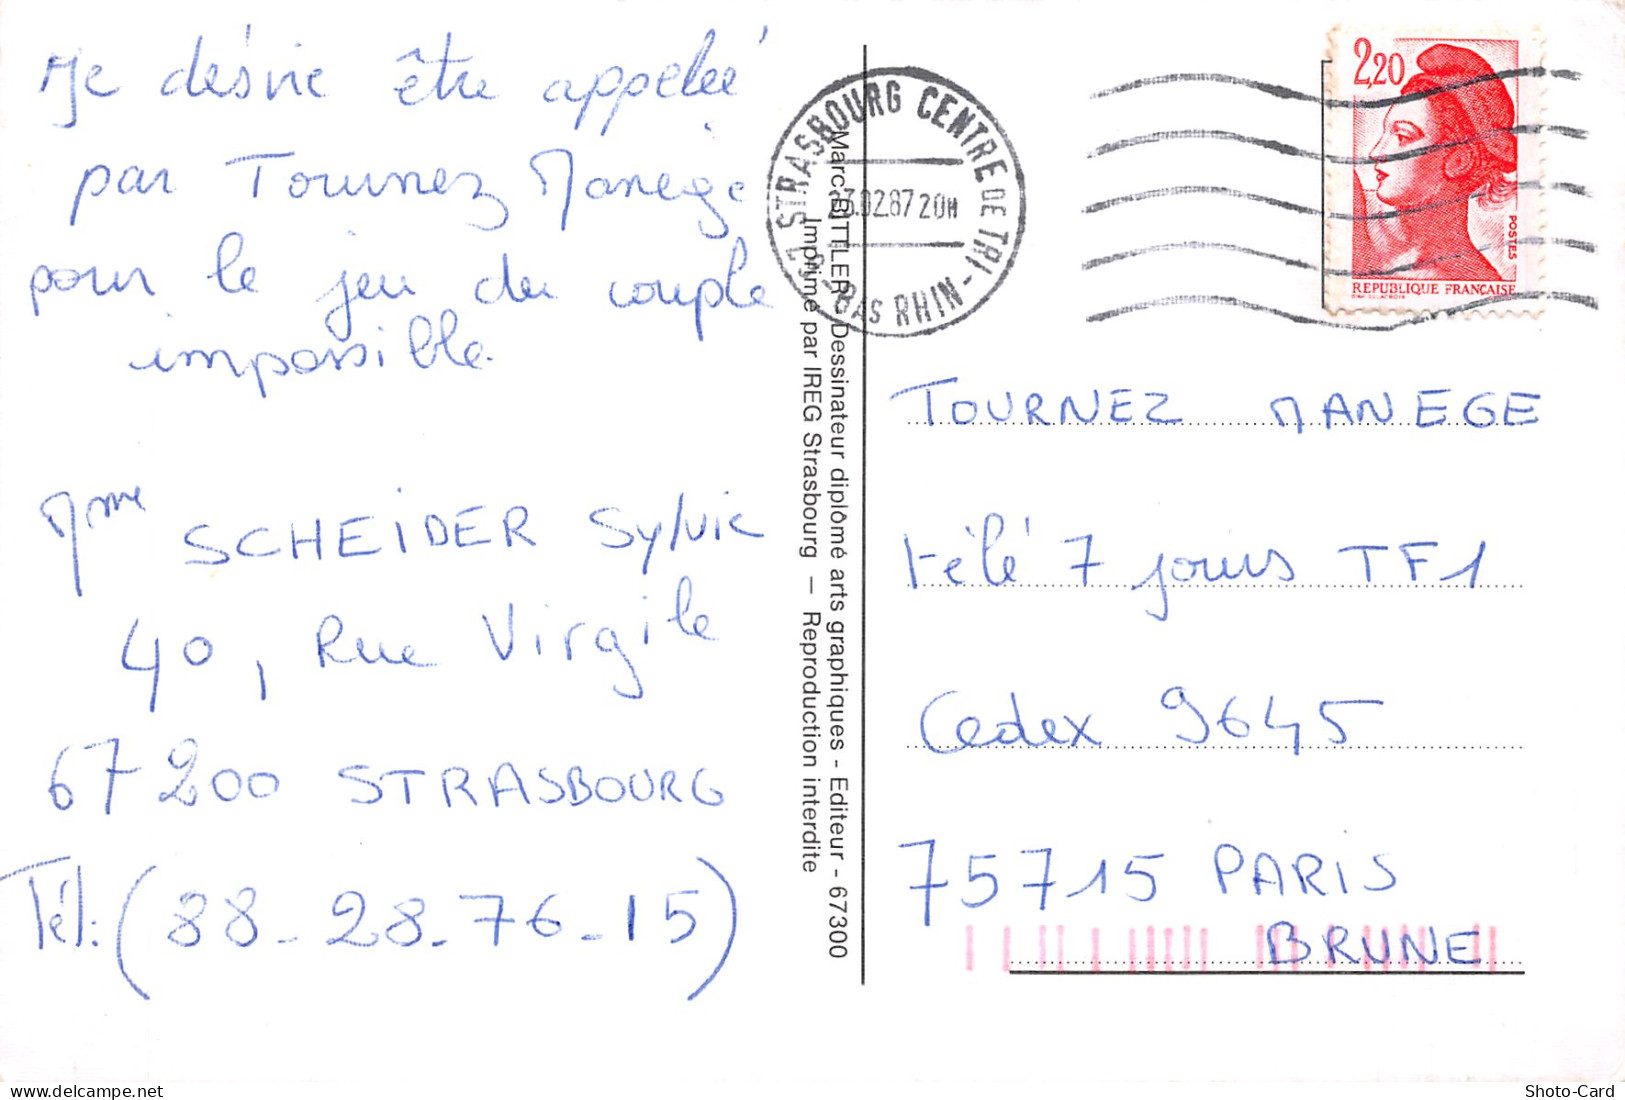 Je désire être appelée
par Tournez Manège
pour le jeu du couple
impossible.
Mme SCHEIDER Sylvie
40, Rue Virgile
67200 STRASBOURG
Tél: (88-28-76-15)
Marc BITTLER - Dessinateur diplômé arts graphiques - Editeur - 67300
Imprimé par IREG Strasbourg — Reproduction interdite
STRASBOURG CENTRE DE TRI -
02.87 20H
BAS RHIN
2,20
POSTES
REPUBLIQUE FRANÇAISE
TOURNEZ MANEGE
télé 7 jours TF1
Cedex 9645
75715 PARIS
BRUNE
Shoto-Card